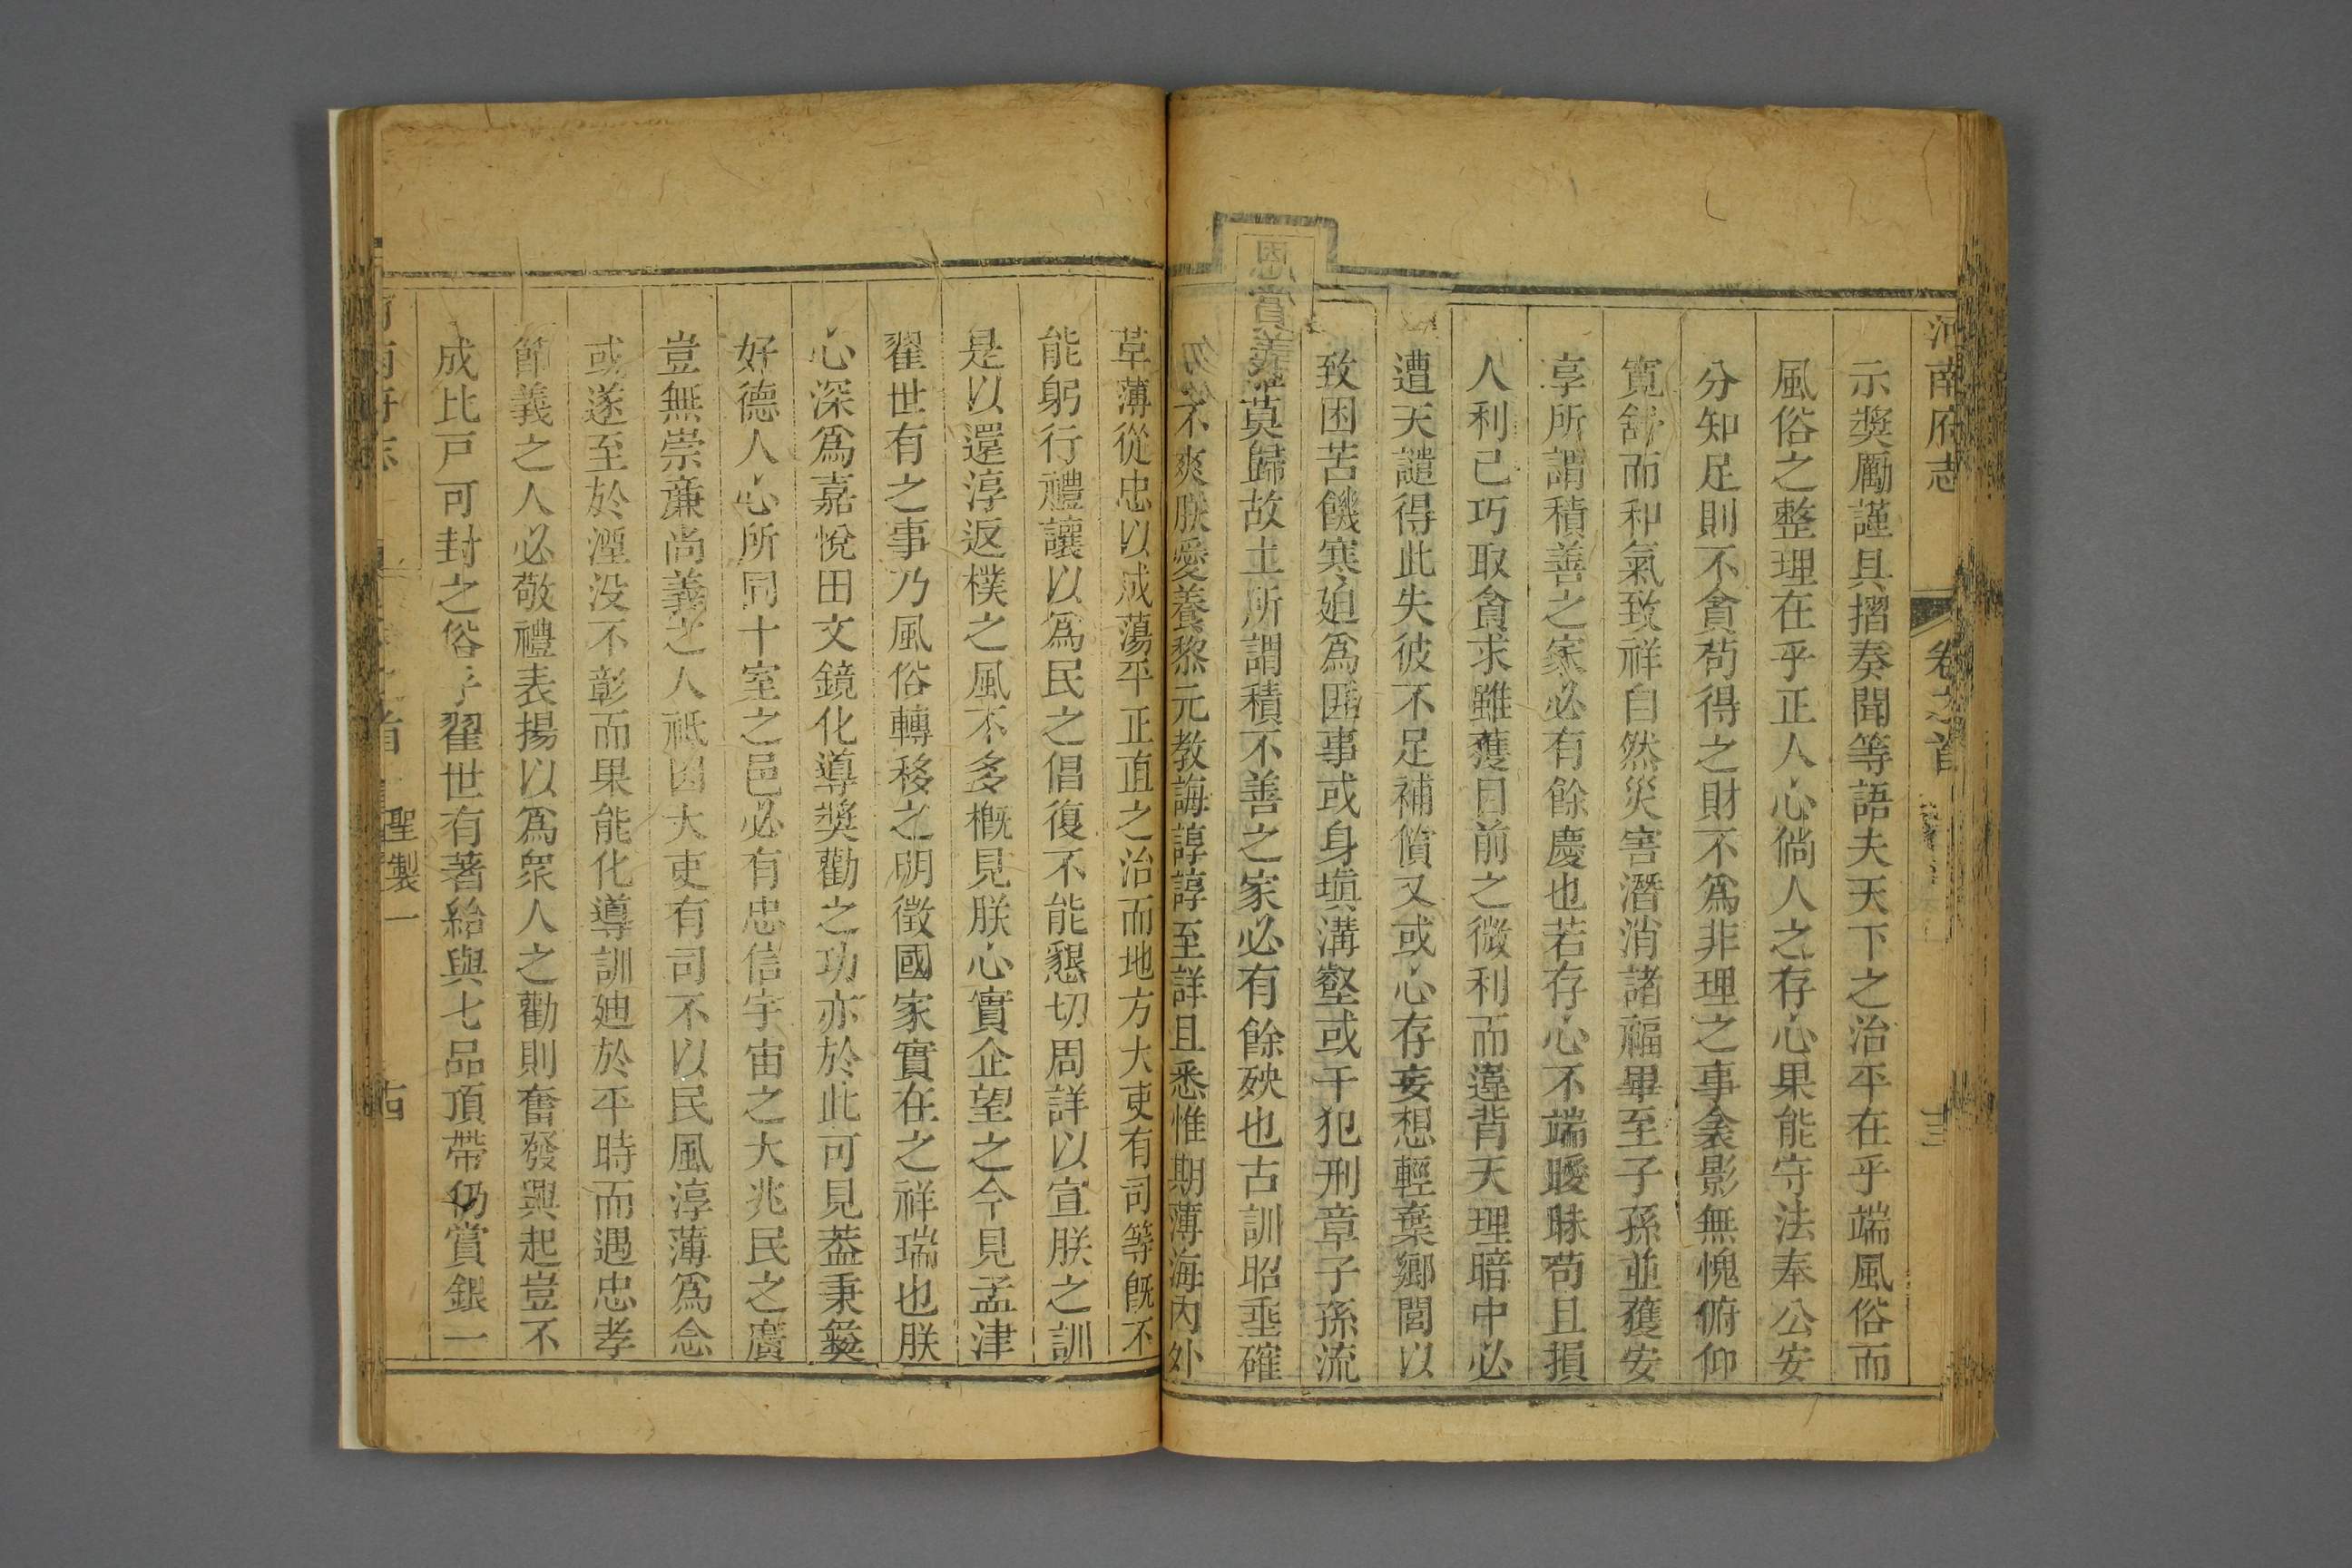 河南府志 卷之首 十三
示奬勵謹具摺奏聞等語夫天下之治平在乎端風俗而
風俗之整理在乎正人心倘人之存心果能守法奉公安
分知足則不貪苟得之財不爲非理之事衾影無愧俯仰
寛舒而和氣致祥自然災害潛消諸福畢至子孫並獲安
享所謂積善之家必有餘慶也若存心不端曖昧苟且損
人利己巧取貪求雖獲目前之微利而違背天理暗中必
遭天譴得此失彼不足補償又或心存妄想輕棄鄉閭以
致困苦饑寒廹爲匪事或身塡溝壑或干犯刑章子孫流
莫歸故土所謂積不善之家必有餘殃也古訓昭垂確
不爽朕愛養黎元教誨諄諄至詳且悉惟期薄海內外
革薄從忠以成蕩平正直之治而地方大吏有司等旣不
能躬行禮讓以爲民之倡復不能懇切周詳以宣朕之訓
是以還淳返樸之風不多槪見朕心實企望之今見孟津
翟世有之事乃風俗轉移之明徵國家實在之祥瑞也朕
心深爲嘉悅田文鏡化導奬勸之功亦於此可見葢秉彜
好德人心所同十室之邑必有忠信宇宙之大兆民之廣
豈無崇廉尚義之人祇因大吏有司不以民風淳薄爲念
或遂至於湮没不彰而果能化導訓廸於平時而遇忠孝
節義之人必敬禮表揚以爲衆人之勸則奮發興起豈不
成比戸可封之俗乎翟世有著給與七品頂帶仍賞銀一
聖製一